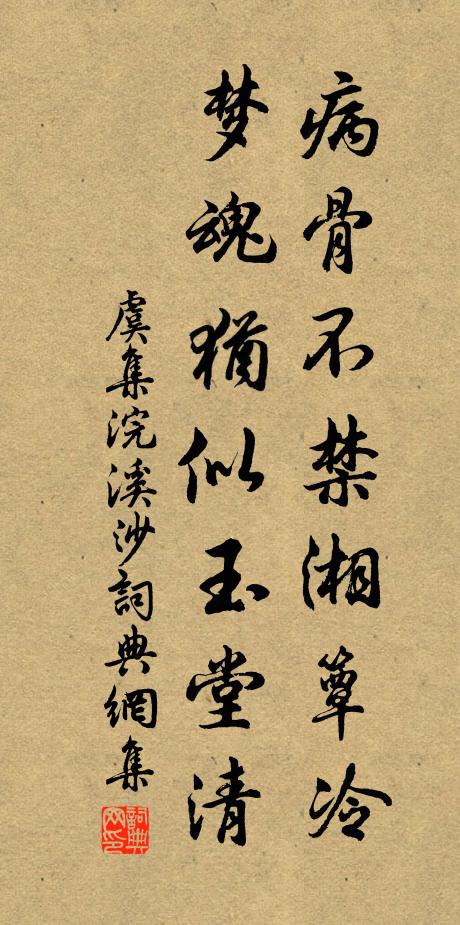 病骨不禁湘簟冷
梦魂犹似玉堂清
虞集浣溪沙詞典網集
詞典网印